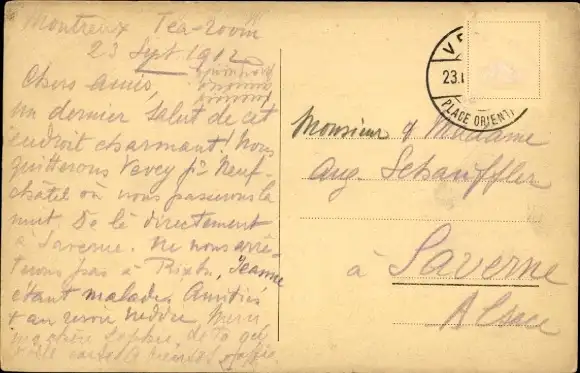 Montreux Tea-Room
23 Sept 1912
Chers amis,
un dernier salut de cet
endroit charmant! Nous
quitterons Vevey pr Neuf-
châtel où nous passerons la
nuit. De là directement
à Saverne. Ne nous arrê-
terons pas à Rixh, Jeanne
étant malade. Amitiés
+ au revoir
Merci
ma chère Sophie, de ta
carte
VE
23.
PLACE ORIENT
Monsieur & Madame
Aug. Schauffler
à Saverne
Alsace